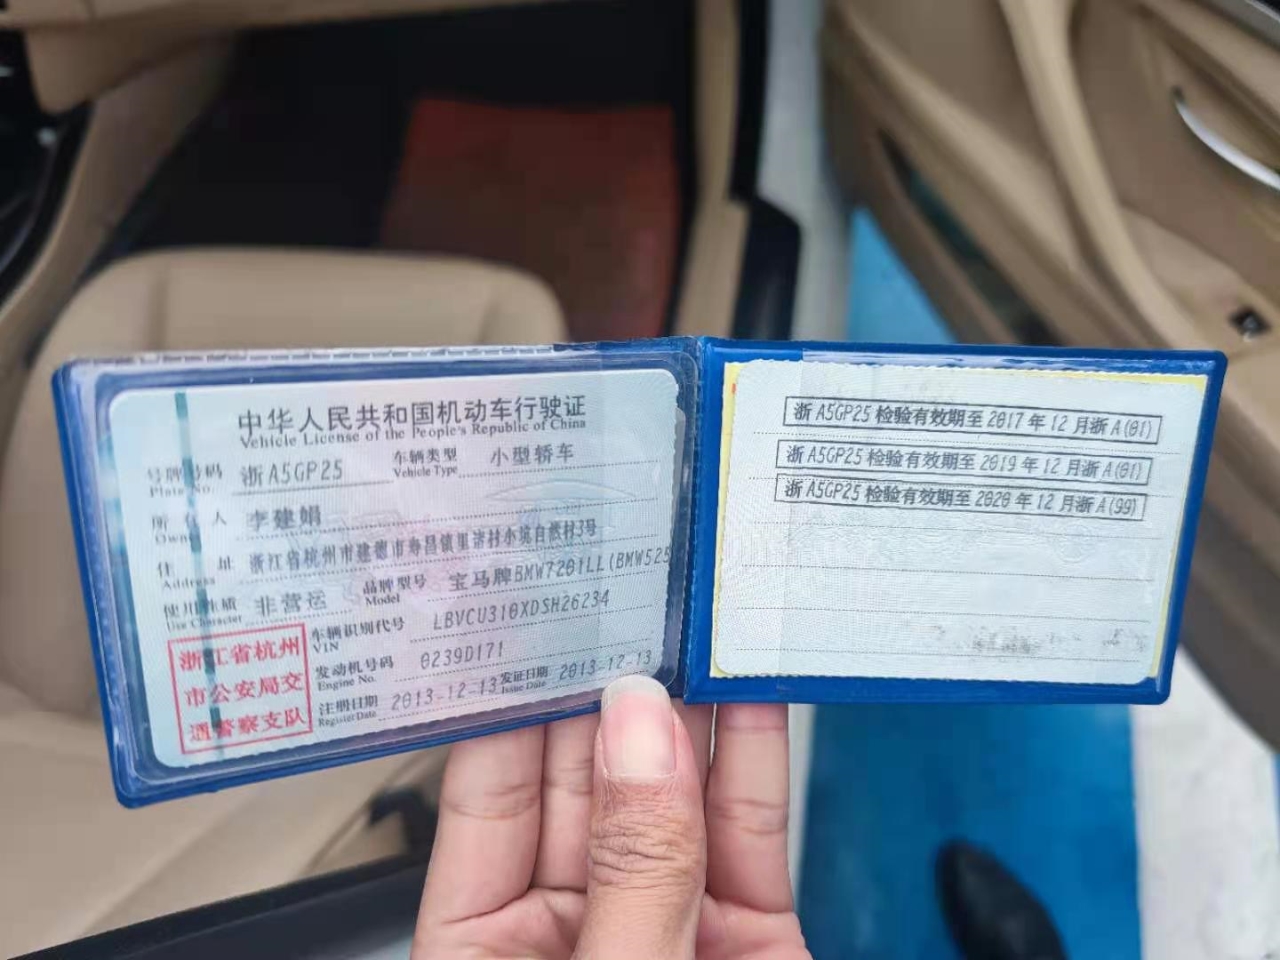 中华人民共和国机动车行驶证
Vehicle License of the People's Republic of China
号牌号码 浙A5GP25 车辆类型 小型轿车
Plate No. Vehicle Type
所有人 李建娟
Owner
住址 浙江省杭州市建德市寿昌镇里诸村小苑自然村3号
Address
使用性质 非营运 品牌型号 宝马牌BMW7201LL(BMW525
Use Character Model
车辆识别代号 LBVCU310XDSH26234
VIN
发动机号码 0239D171
Engine No.
注册日期 2013-12-13 发证日期 2013-12-13
Register Date Issue Date
浙江省杭州
市公安局交
通警察支队
浙A5GP25检验有效期至2017年12月浙A(01)
浙A5GP25检验有效期至2019年12月浙A(01)
浙A5GP25检验有效期至2020年12月浙A(99)